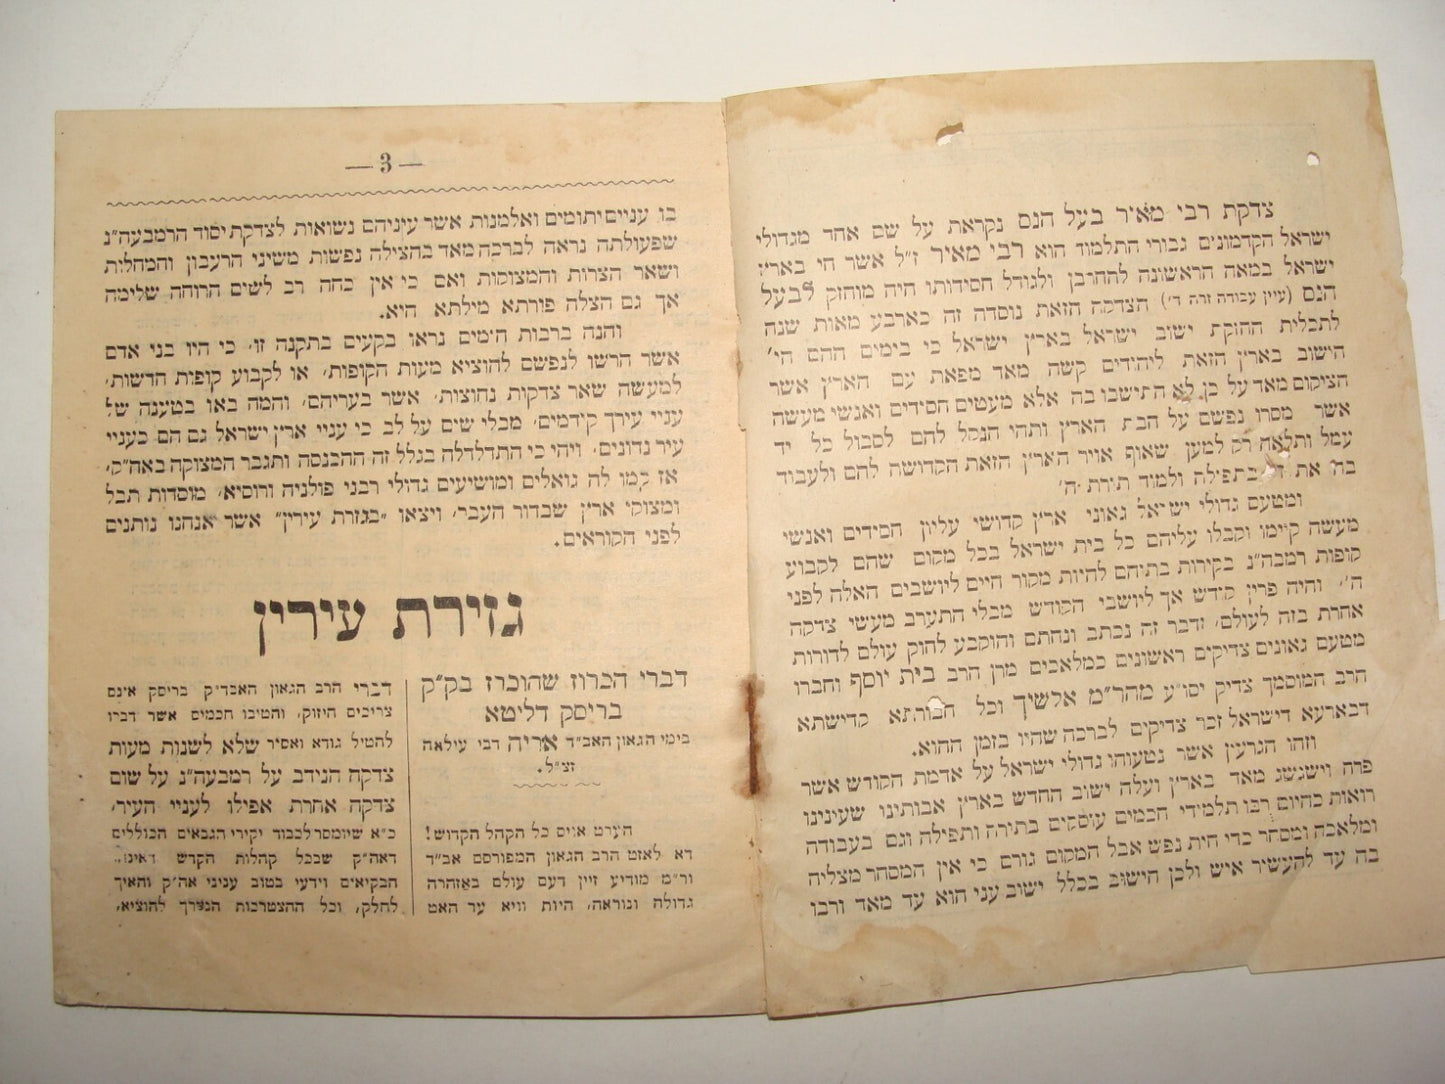 צדקת רבי מאיר בעל הנס נקראת על שם אחד מגדולי
ישראל הקדמונים גבורי התלמוד הוא רבי מאיר ז״ל אשר חי בארץ
ישראל במאה הראשונה לחורבן ולגודל חסידותו היה מוחזק לבעל
הנס (עיין עבודה זרה ד׳) הצדקה הזאת נוסדה זה כארבע מאות שנה
לתכלית החזקת ישוב ישראל בארץ ישראל כי בימים ההם הי׳
הישוב בארץ הזאת ליהודים קשה מאד מפאת עם הארץ אשר
הציקום מאד על כן לא התישבו בה אלא מעטים חסידים ואנשי מעשה
אשר מסרו נפשם על חבת הארץ ותהי הנקל להם לסבול כל יד
עמל ותלאה רק למען שאוף אויר הארץ הזאת הקדושה להם ולעבוד
בה את ד׳ בתפילה ולמוד תורת ה׳
ומטעם גדולי ישראל גאוני ארץ קדושי עליון חסידים ואנשי
מעשה קיימו וקבלו עליהם כל בית ישראל בכל מקום שהם לקבוע
קופות רמבה״נ בקירות בתיהם להיות מקור חיים ליושבים האלה לפני
ה׳, והיה פריו קודש אך ליושבי הקודש מבלי התערב מעשי צדקה
אחרת בזה לעולם, ודבר זה נכתב ונחתם והוקבע לחוק עולם לדורות
מטעם גאונים צדיקים ראשונים כמלאכים מרן הרב בית יוסף וחברו
הרב המוסמך צדיק יסו״ע מהר״מ אלשיך וכל חבורתא קדישתא
דבארעא דישראל זכר צדיקים לברכה שהיו בזמן ההוא.
וזהו הגרעין אשר נטעוהו גדולי ישראל על אדמת הקודש אשר
פרה וישגשג מאד בארץ ועלה ישוב החדש בארץ אבותינו שעינינו
רואות כהיום רבו תלמידי חכמים עוסקים בתורה ותפילה וגם בעבודה
ומלאכה ומסחר כדי חית נפש אבל המקום גורם כי אין המסחר מצליה
בה עד להעשיר איש ולכן הישוב בכלל ישוב עני הוא עד מאד ורבו
— 3 —
בו עניים יתומים ואלמנות אשר עיניהם נשואות לצדקת יסוד הרמבעה״נ
שפעולתה נראה לברכה מאד בהצילה נפשות משיני הרעבון והמהלות
ושאר הצרות והמצוקות ואם כי אין כחה רב לשים הרוחה שלימה
אך גם הצלה פורתא מילתא היא.
והנה ברבות הימים נראו בקעים בתקנה זו, כי היו בני אדם
אשר הרשו לנפשם להוציא מעות הקופות, או לקבוע קופות חדשות,
למעשה שאר צדקות נחוצות, אשר בעריהם, והמה באו בטענה של
עניי עירך קודמים, מבלי שים על לב כי עניי ארץ ישראל גם הם כעניי
עיר נדונים, ויהי כי התדלדלה בגלל זה ההכנסה ותגבר המצוקה באה״ק,
אז קמו לה גואלים ומושיעים גדולי רבני פולניה ורוסיא, מוסדות תבל
ומצוקי ארץ שבדור העבר, ויצאו ״בגזרת עירין״ אשר אנחנו נותנים
לפני הקוראים.
גזירת עירין
דברי הכרוז שהוכרז בק״ק
בריסק דליטא
בימי הגאון האב״ד אריה דבי עילאה
זצ״ל.
הערט אויס כל הקהל הקדוש!
דא לאזט הרב הגאון המפורסם אב״ד
ור״מ מודיע זיין דעם עולם באזהרה
גדולה ונוראה, היות וויא ער האט
דברי הרב הגאון האבד״ק בריסק אינם
צריכים חיזוק, והטיבו חכמים אשר דברו
להטיל גודא ואסיר שלא לשנות מעות
צדקה הנידב על רמבעה״נ על שום
צדקה אחרת אפילו לעניי העיר,
כ״א שיומסר לכבוד יקירי הגבאים הכוללים
דאה״ק שבכל קהלות הקדש
הבקיאים וידעי בטוב עניני אה״ק והאיך
לחלק, וכל ההצטרכות הנצרך להוציא,